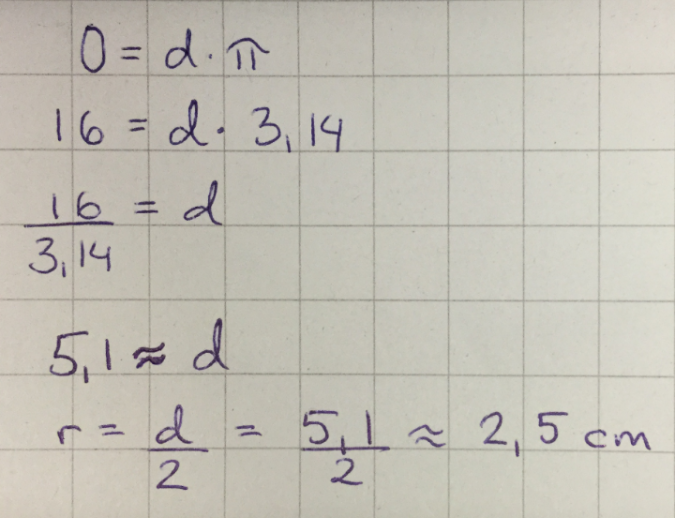 O = d · π
16 = d · 3,14
16/3,14 = d
5,1 ≈ d
r = d/2 = 5,1/2 ≈ 2,5 cm